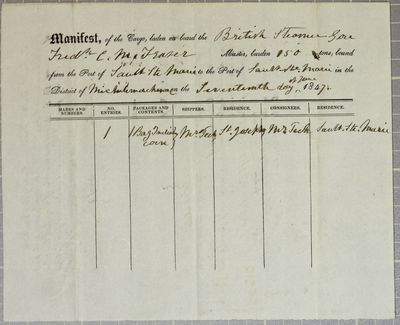 Manifest, of the Cargo, laden on board the British Steamer Gore
Fredk C. McFraser Master, burden 150 tons, bound
from the Port of Sault Ste Marie to the Port of Sault Ste Marie in the
District of Michilimackinac on the Seventeenth day of June 1847.
MARKS AND NUMBERS. NO. ENTRIES. PACKAGES AND CONTENTS. SHIPPERS. RESIDENCE. CONSIGNEES. RESIDENCE.
1 1 Bag Indian Mr Teck St Joseph Mr Teck Sault Ste. Marie
Corn